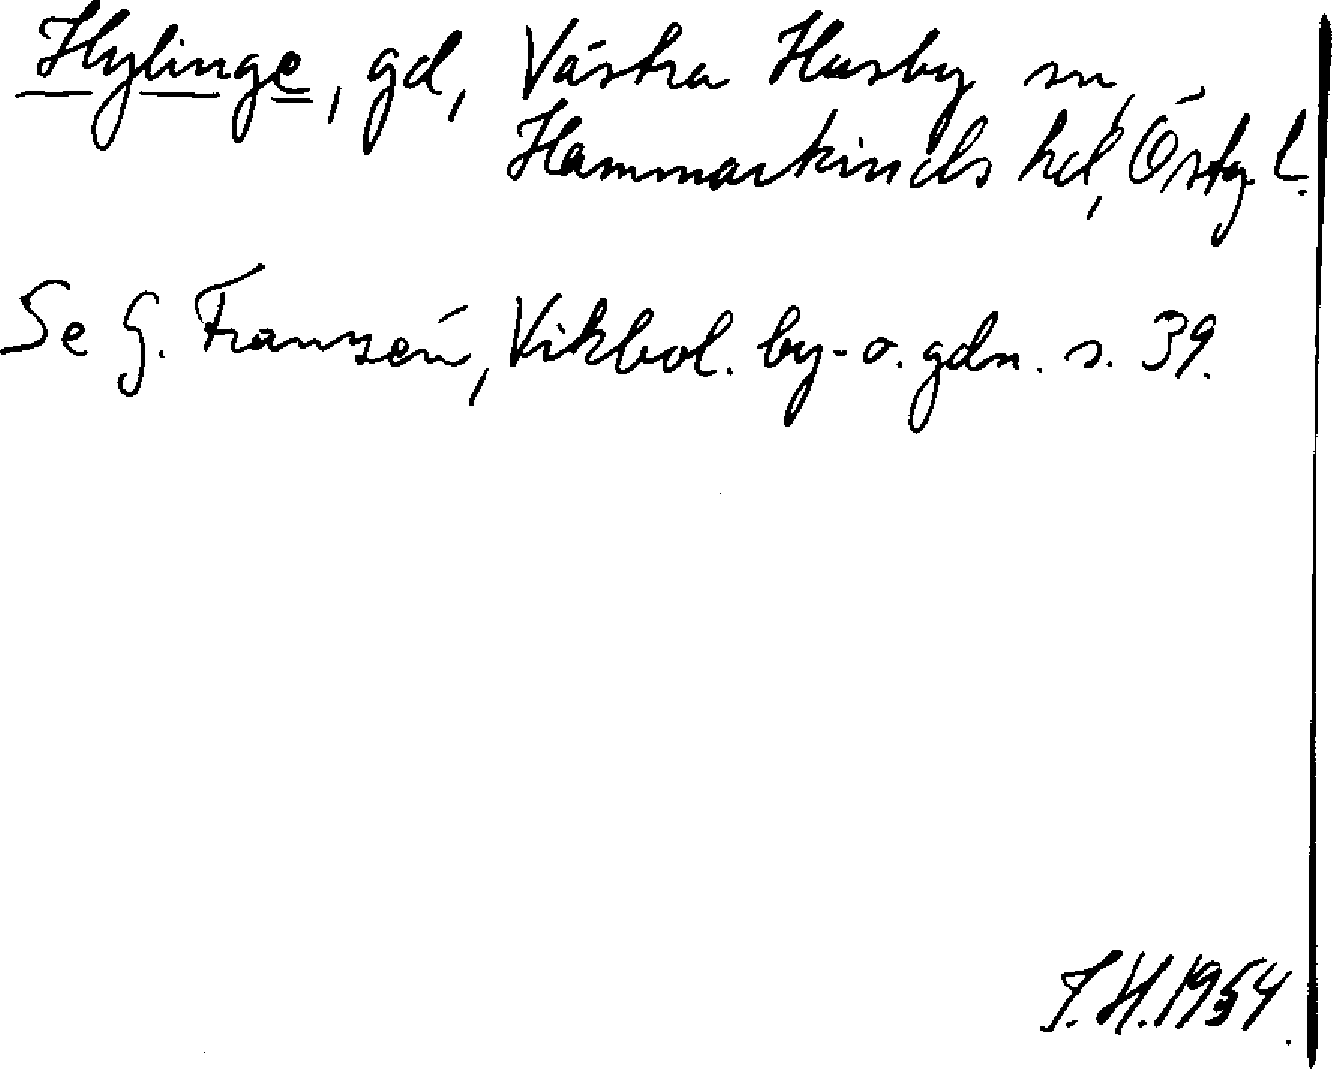 Hylinge, gd, Västra Husby sn,
Hammarkinds hd, Östg. l.
Se G. Franzén, Vikbol. by- o. gdn. s. 39.
I. H. 1954.